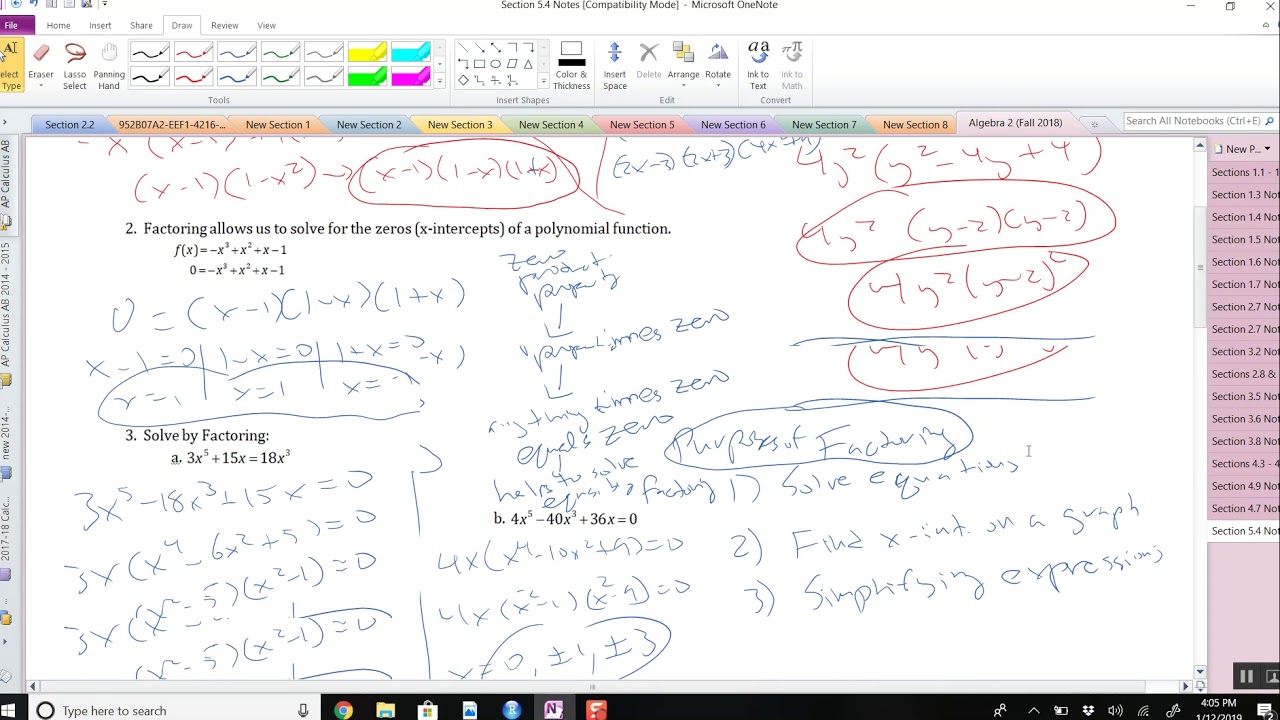 Section 5.4 Notes [Compatibility Mode] - Microsoft OneNote
File Home Insert Share Draw Review View
Select Type
Eraser
Lasso Select
Panning Hand
Color & Thickness
Insert Space
Delete
Arrange
Rotate
Ink to Text
Ink to Math
Tools
Insert Shapes
Edit
Convert
Section 2.2
952B07A2-EEF1-4216-...
New Section 1
New Section 2
New Section 3
New Section 4
New Section 5
New Section 6
New Section 7
New Section 8
Algebra 2 (Fall 2018)
Search All Notebooks (Ctrl+E)
New P...
Sections 1.1 - 1
Section 1.3 Not
Section 1.4 Not
Section 1.5 Not
Section 1.6 Not
Section 1.7 Not
Section 2.7 Not
Section 2.7 Not
Section 3.2 Not
Sections 2.8 &
Section 3.5 Not
Section 3.6 Not
Section 3.8 Not
Sections 4.3 - 4
Section 4.9 Not
Section 4.7 Not
Section 5.4 Not
AP Calculus AB
AP Calculus AB 2014 - 2015
new 2014-...
2017-18 Calc
(x-1)(1-x²) → (x-1)(1-x)(1+x)
(2x-3)(2x+3)(4x²+9)
4y²(y²-4y+4)
4y² (y-2)(y-2)
4y²(y-2)²
2. Factoring allows us to solve for the zeros (x-intercepts) of a polynomial function.
f(x)=-x³+x²+x-1
0=-x³+x²+x-1
0 = (x-1)(1-x)(1+x)
x-1=0 | 1-x=0 | 1+x=0
x=1 x=1 x=-1
zero product property
times zero
anything times zero equals zero
helps to solve
factoring
Purposes of Factoring
1) Solve equations
2) Find x-int. on a graph
3) Simplifying expressions
3. Solve by Factoring:
a. 3x⁵+15x=18x³
3x⁵-18x³+15x=0
3x(x⁴-6x²+5)=0
3x(x²-5)(x²-1)=0
3x(x²-5)(x²-1)=0
b. 4x⁵-40x³+36x=0
4x(x⁴-10x²+9)=0
4x(x²-1)(x²-9)=0
x=0, ±1, ±3
Type here to search
4:05 PM
1/12/2019